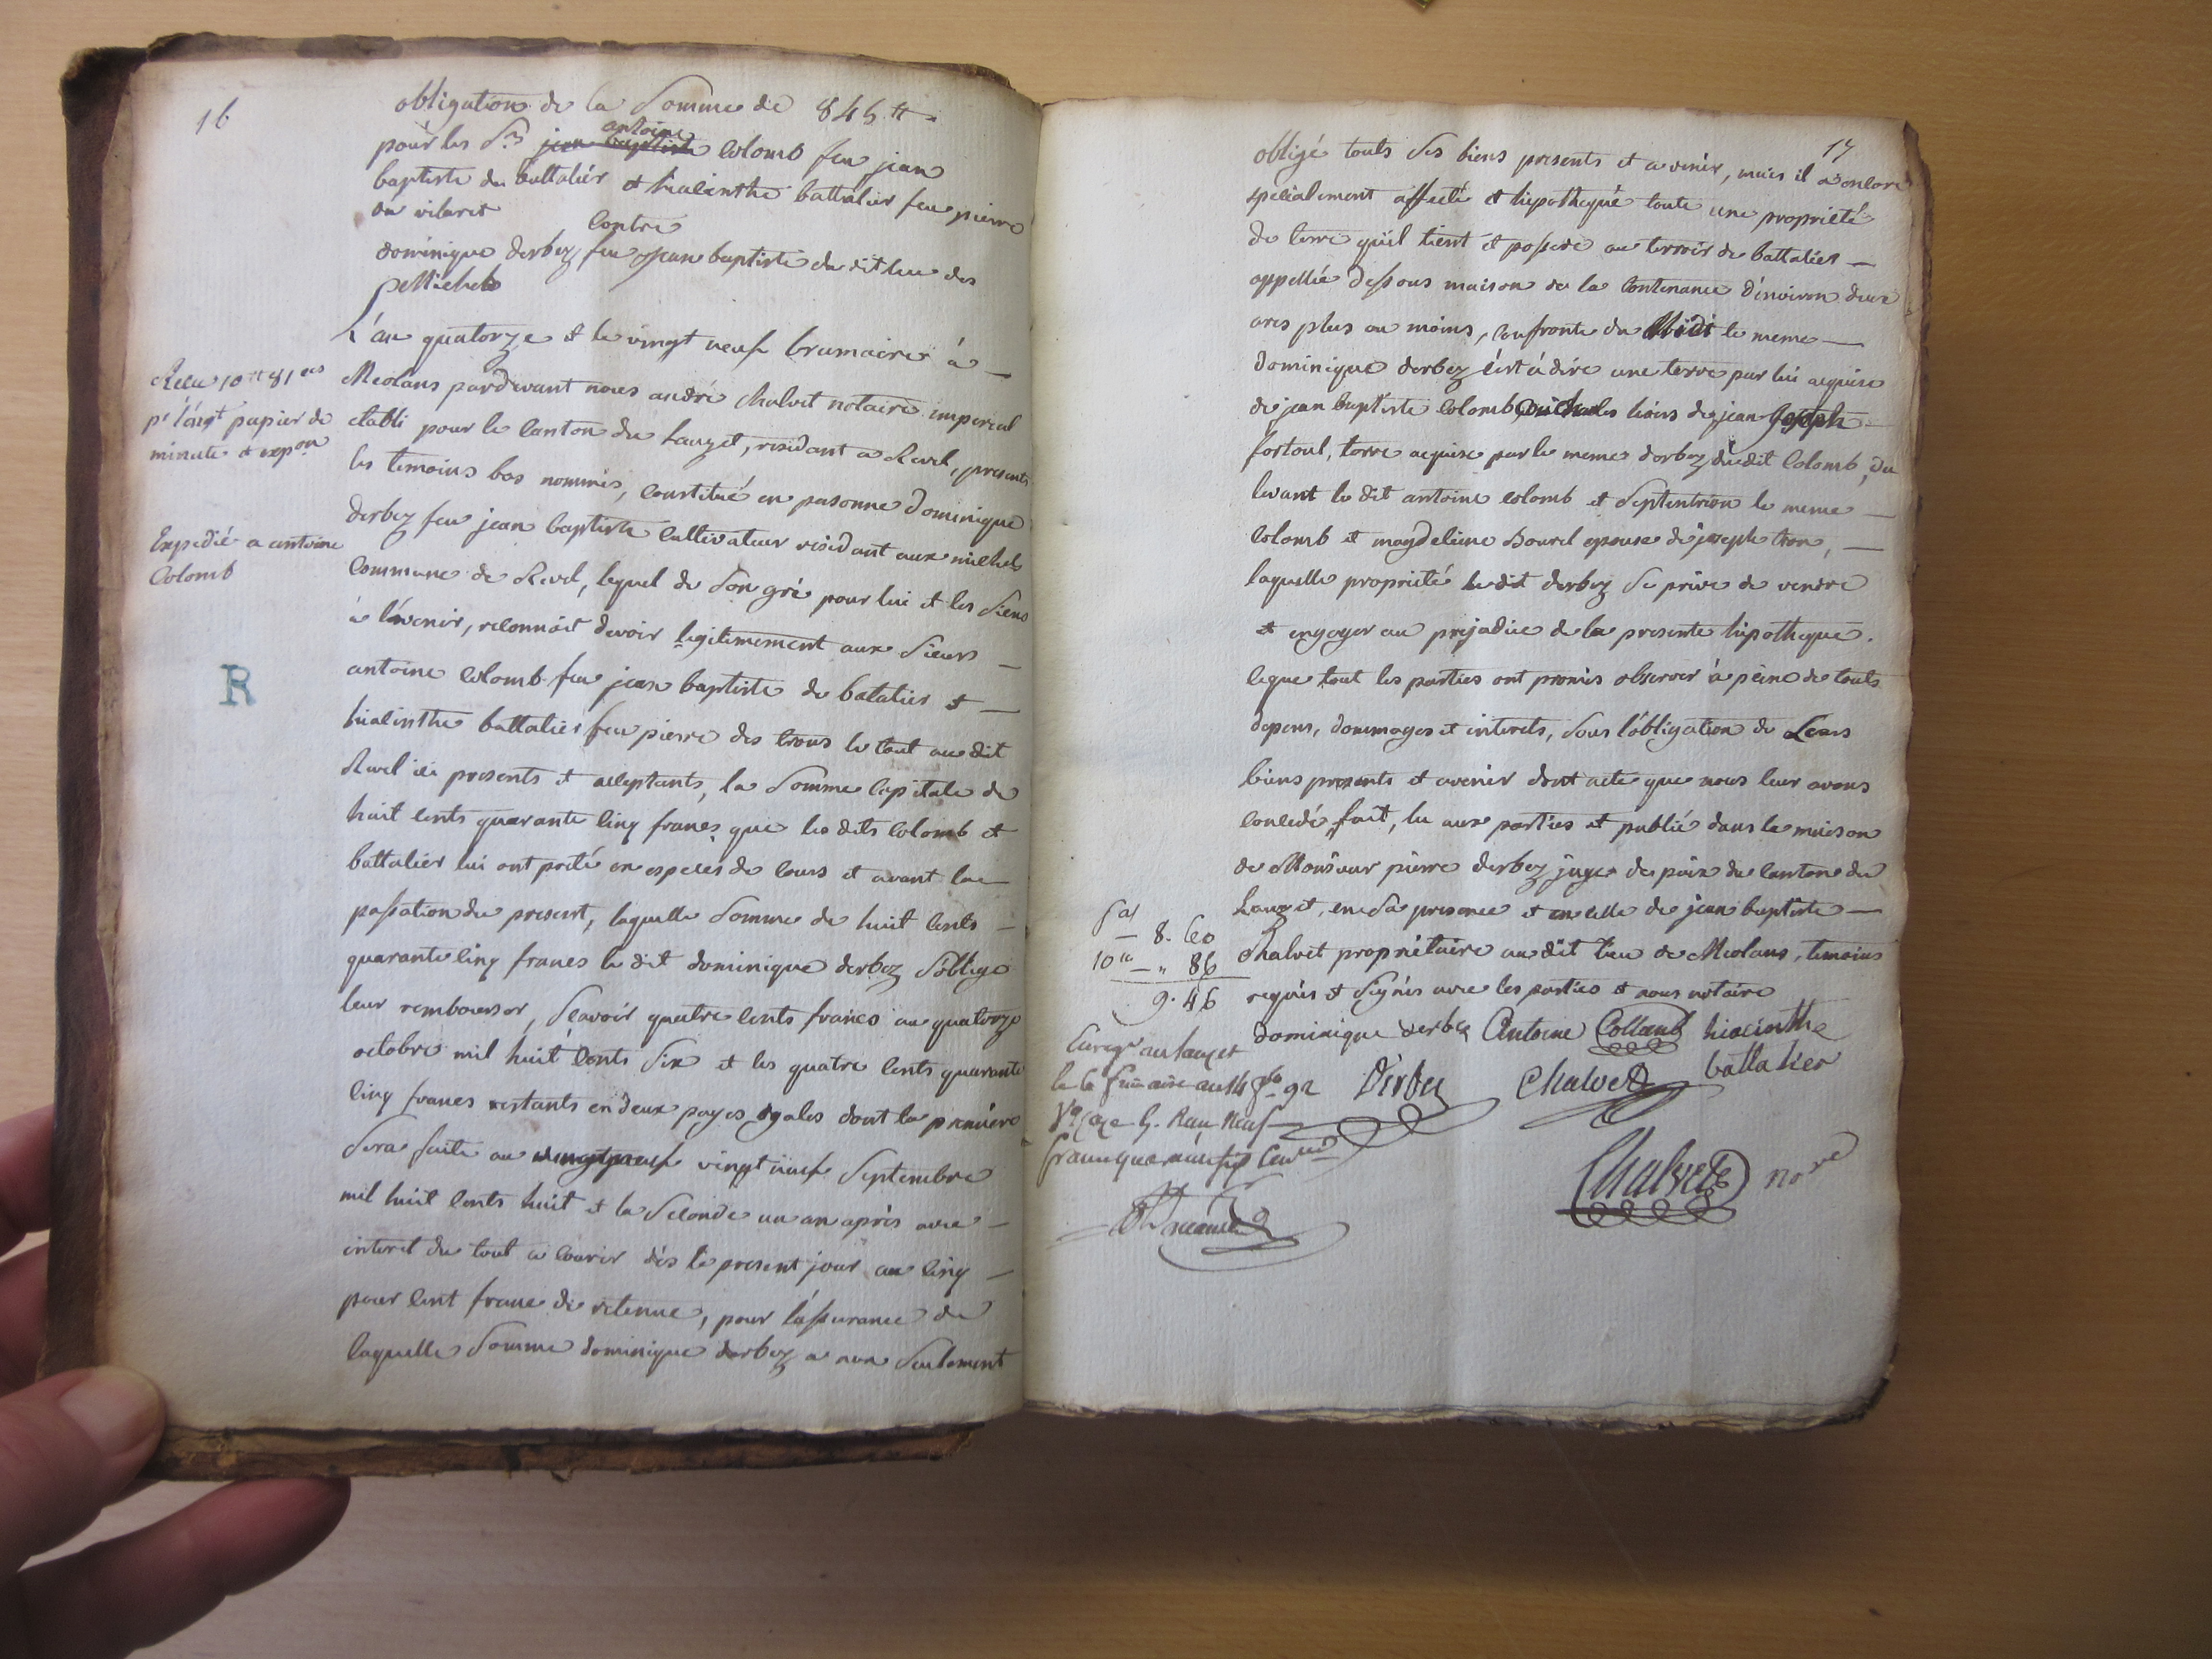 16
obligation de la somme de 845 tt.
pour les Srs jean baptiste antoine colomb feu jean
baptiste du battalier et hiacinthe battalier feu pierre
du vilaret
contre
dominique derbez feu jean baptiste du dit lieu des
michels
L'an quatorze et le vingt neuf brumaire à
Meolans pardevant nous andré chalvet notaire imperial
etabli pour le canton du Lauzet, residant a Revel, presents
les temoins bas nommés, constitué en personne dominique
derbez feu jean baptiste cultivateur residant aux michels
commune de Revel, lequel de son gré pour lui et les siens
à l'avenir, reconnoit devoir legitimement aux sieurs
antoine colomb feu jean baptiste de batalier et
hiacinthe battalier feu pierre des trons le tout au dit
Revel ici presents et acceptants, la somme capitale de
huit cents quarante cinq francs que les dits colomb et
battalier lui ont preté en especes de cours et avant la
passation du present, laquelle somme de huit cents
quarante cinq francs le dit dominique derbez s'oblige
leur rembourser, sçavoir quatre cents francs au quatorze
octobre mil huit cents six et les quatre cents quarante
cinq francs restants en deux payes egales dont la premiere
sera faite au vingt neuf septembre
mil huit cents huit et la seconde un an après avec
interet du tout a courir dès le present jour au cinq
pour cent franc de retenue, pour l'assurance de
laquelle somme dominique derbez a non seulement
Recu 10 tt 81 es
pr l'engt papier de
minute et expon
Expedié a antoine
Colomb
R
17
obligé touts ses biens presents et a venir, mais il a encore
specialement affecté et hipothequé toute une proprieté
de terre qu'il tient et possede au terroir de battalier
appellée dessous maison de la contenance d'environ deux
ares plus ou moins, confronte du Midi le meme
dominique derbez c'est à dire une terre par lui acquise
de jean baptiste colomb hoirs de jean Joseph
fortoul, terre acquise par le meme derbez du dit colomb, du
levant le dit antoine colomb et septentrion le meme
colomb et magdeleine Bourel epouse de joseph tron,
laquelle proprieté le dit derbez se prive de vendre
et engager au prejudice de la presente hipotheque.
ce que tout les parties ont promis observer à peine de touts
depens, dommages et interets, sous l'obligation de Leurs
biens presents et avenir dont acte que nous leur avons
concedé, fait, lu aux parties et publié dans la maison
de Monsieur pierre derbez juge de paix du canton du
Lauzet, en sa presence et en celle de jean baptiste
Chalvet proprietaire au dit lieu de Meolans, temoins
requis et signés avec les parties et nous notaire
dominique derbez Antoine Collomb hiacinthe
battalier
Derbez Chalvet
Chalvet nore
8. 60
10e " 86
9. 46
Enregé au lauzet
le 6 frimaire an 14 fo 92